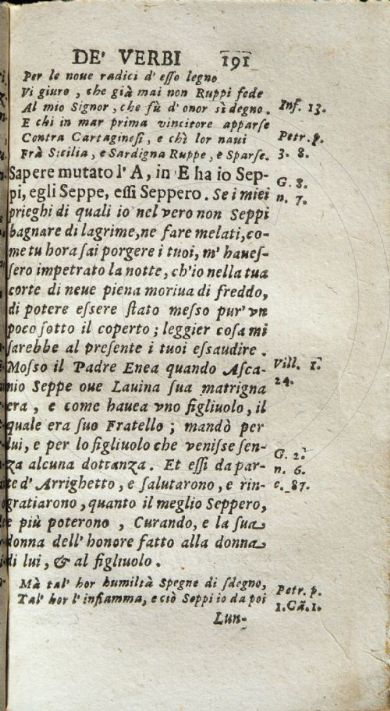 DE' VERBI 191
Per le noue radici d' esso legno
Vi giuro, che già mai non Ruppi fede
Al mio Signor, che fù d' onor sì degno. Inf. 13.
E chi in mar prima vincitore apparse
Contra Cartaginesi, e chi lor naui Petr. p.
Frà Sicilia, e Sardigna Ruppe, e Sparse. 3. 8.
Sapere mutato l' A, in E ha io Sep- G. 8.
pi, egli Seppe, essi Seppero. Se i miei n. 7.
prieghi di quali io nel vero non Seppi
bagnare di lagrime, ne fare melati, co-
me tu hora sai porgere i tuoi, m' haues-
sero impetrato la notte, ch'io nella tua
corte di neue piena moriua di freddo,
di potere essere stato messo pur' vn
poco sotto il coperto; leggier cosa mi
sarebbe al presente i tuoi essaudire.
Mosso il Padre Enea quando Asca- Vill. 1.
nio Seppe oue Lauina sua matrigna 24.
era, e come hauea vno figliuolo, il
quale era suo Fratello; mandò per
lui, e per lo figliuolo che venisse sen-
za alcuna dottanza. Et essi da par- G. 2.
te d' Arrighetto, e salutarono, e rin- n. 6.
gratiarono, quanto il meglio Seppero, c. 87.
e più poterono, Curando, e la sua
donna dell' honore fatto alla donna
di lui, & al figliuolo.
Mà tal' hor humiltà Spegne di sdegno, Petr. p.
Tal' hor l' infiamma, e ciò Seppi io da poi 1. Cã. 1.
Lun-